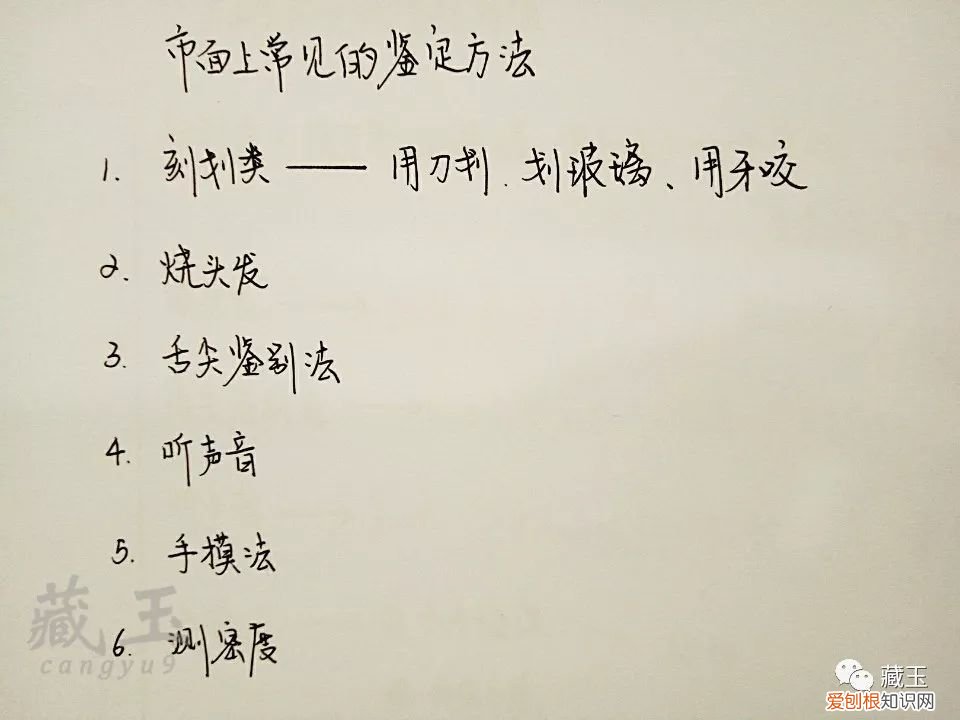 市面上常见的鉴定方法
1. 刻划类 —— 用刀划、划玻璃、用牙咬
2. 烧头发
3. 舌尖鉴别法
4. 听声音
5. 手模法
6. 测密度
藏玉
cangyu9
藏玉
爱刨根知识网